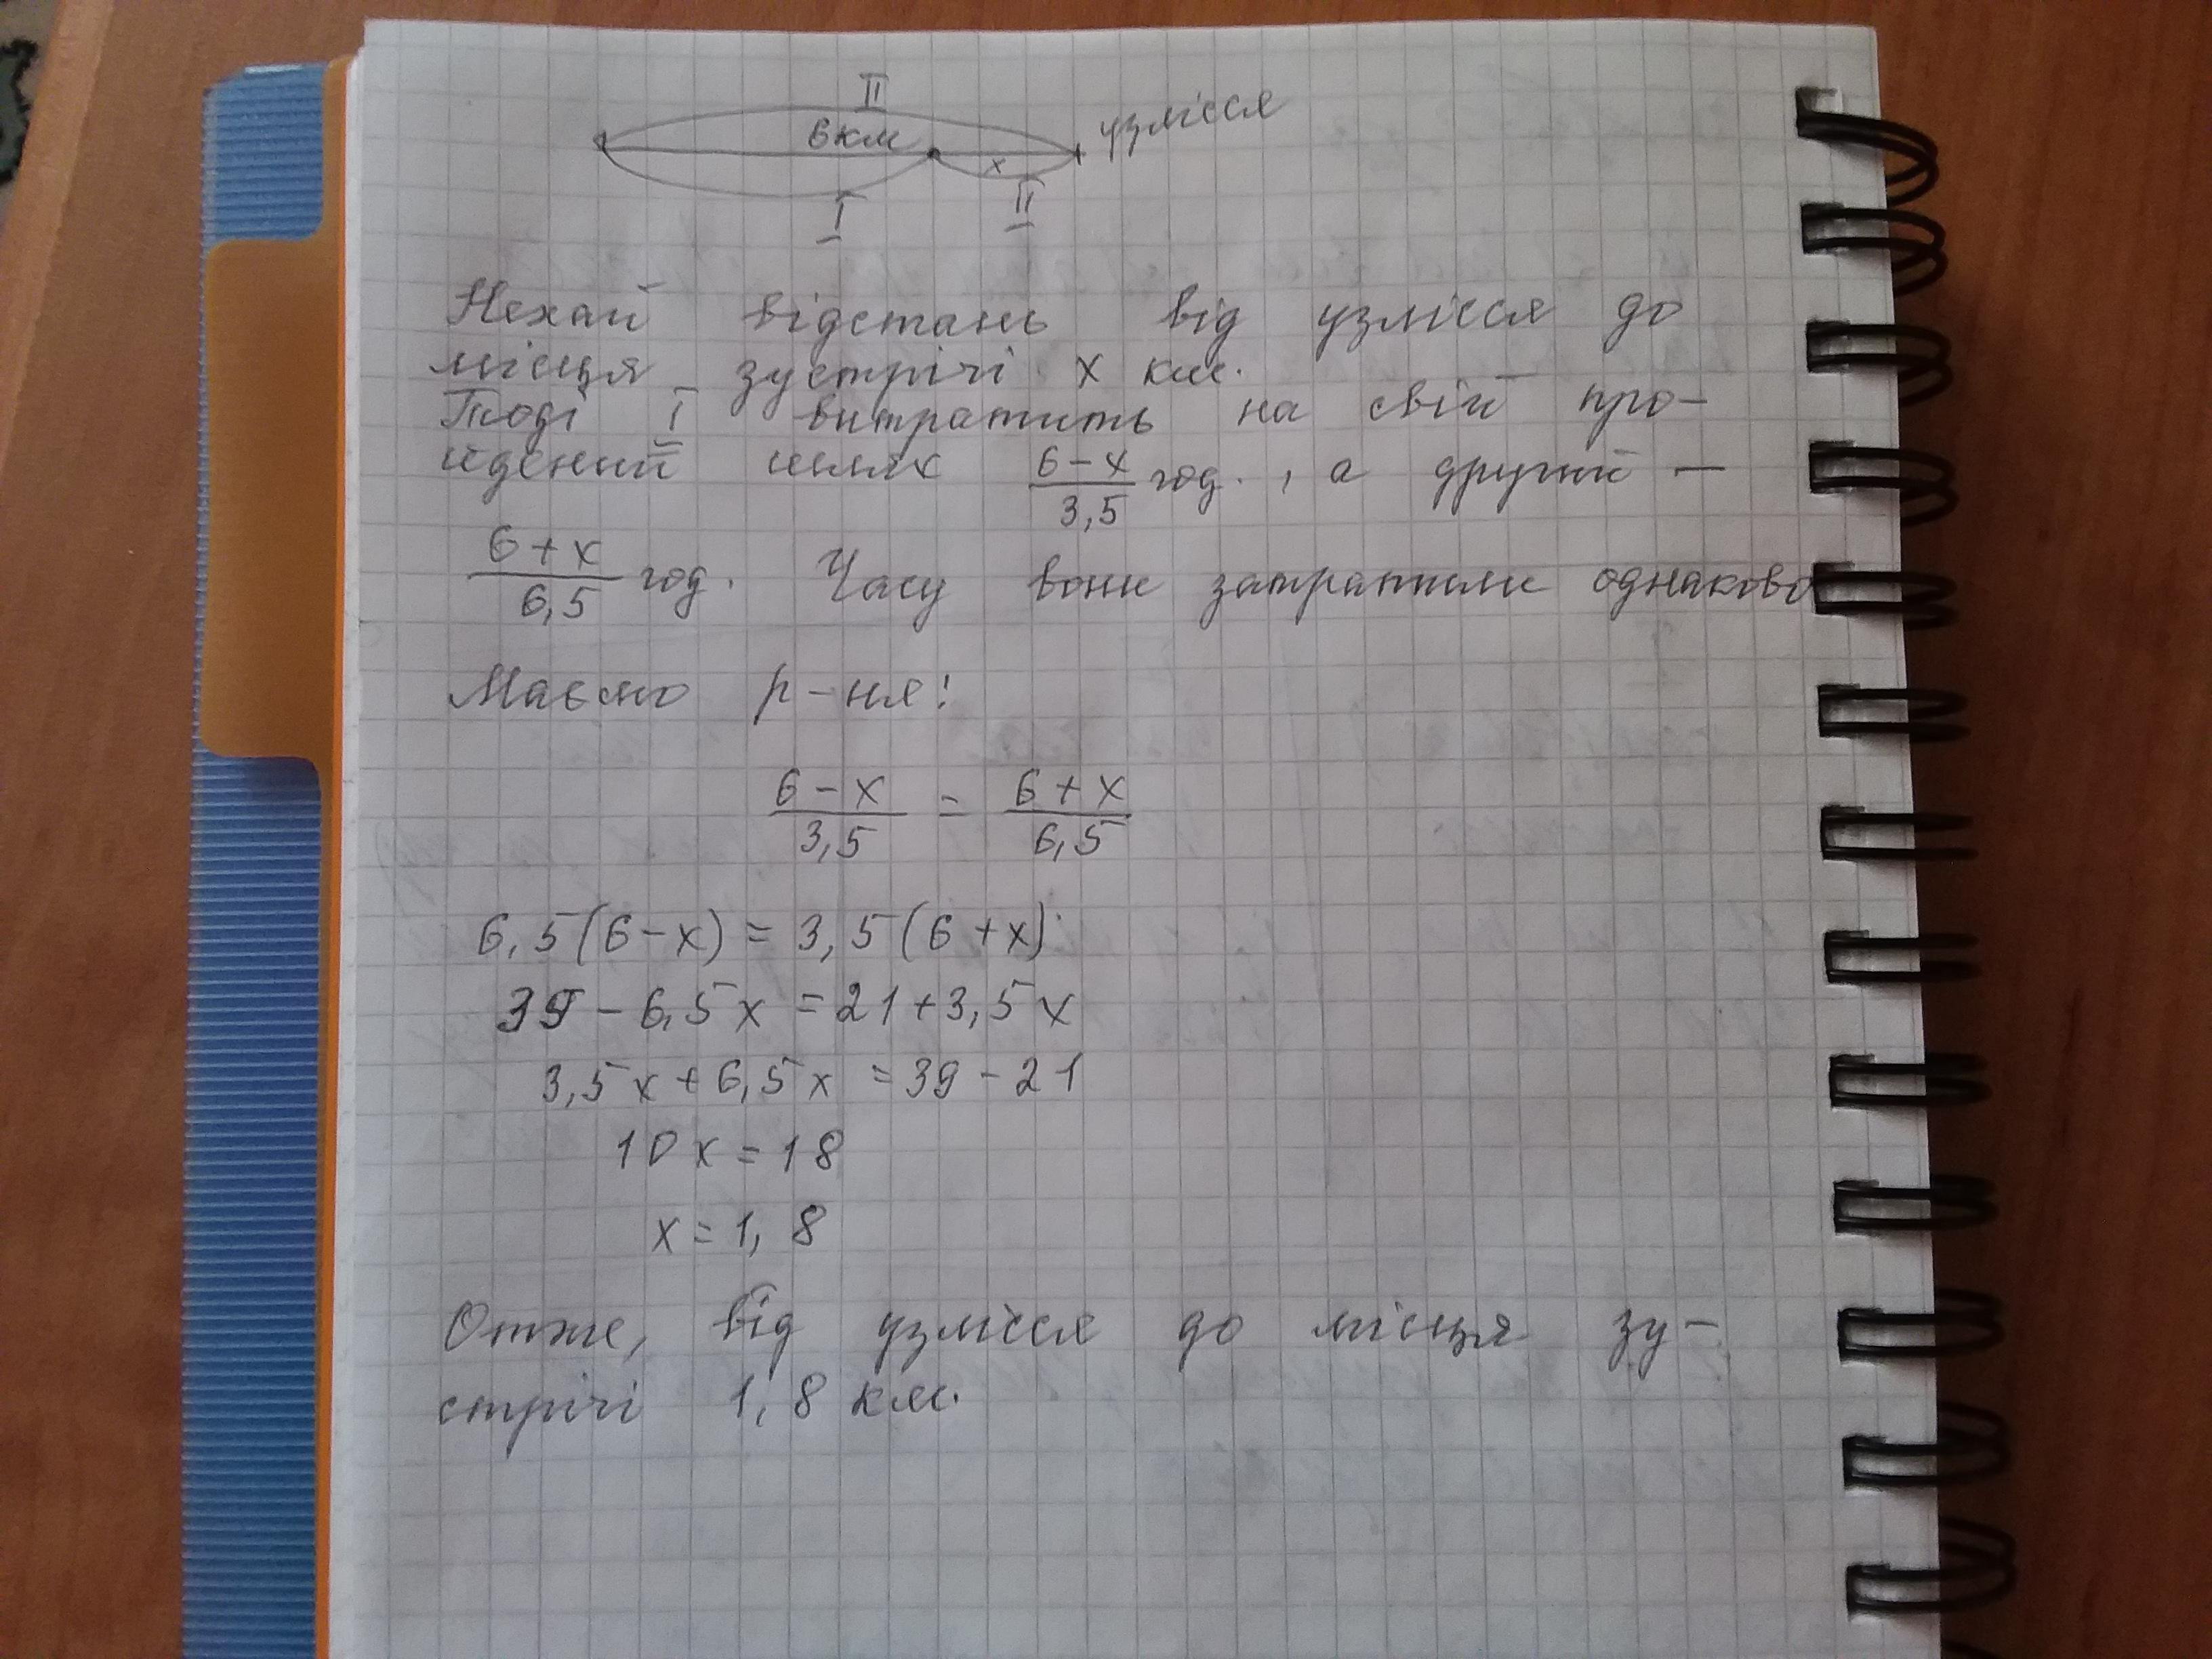 II
6 км
узлісся
x
I
II
Нехай відстань від узлісся до
місця зустрічі x км.
Тоді I витратить на свій про-
йдений шлях 6-x/3,5 год., а другий —
6+x/6,5 год. Часу вони затратили однаково
Маємо р-ня:
6-x/3,5 = 6+x/6,5
6,5(6-x) = 3,5(6+x)
39 - 6,5x = 21 + 3,5x
3,5x + 6,5x = 39 - 21
10x = 18
x = 1,8
Отже, від узлісся до місця зу-
стрічі 1,8 км.